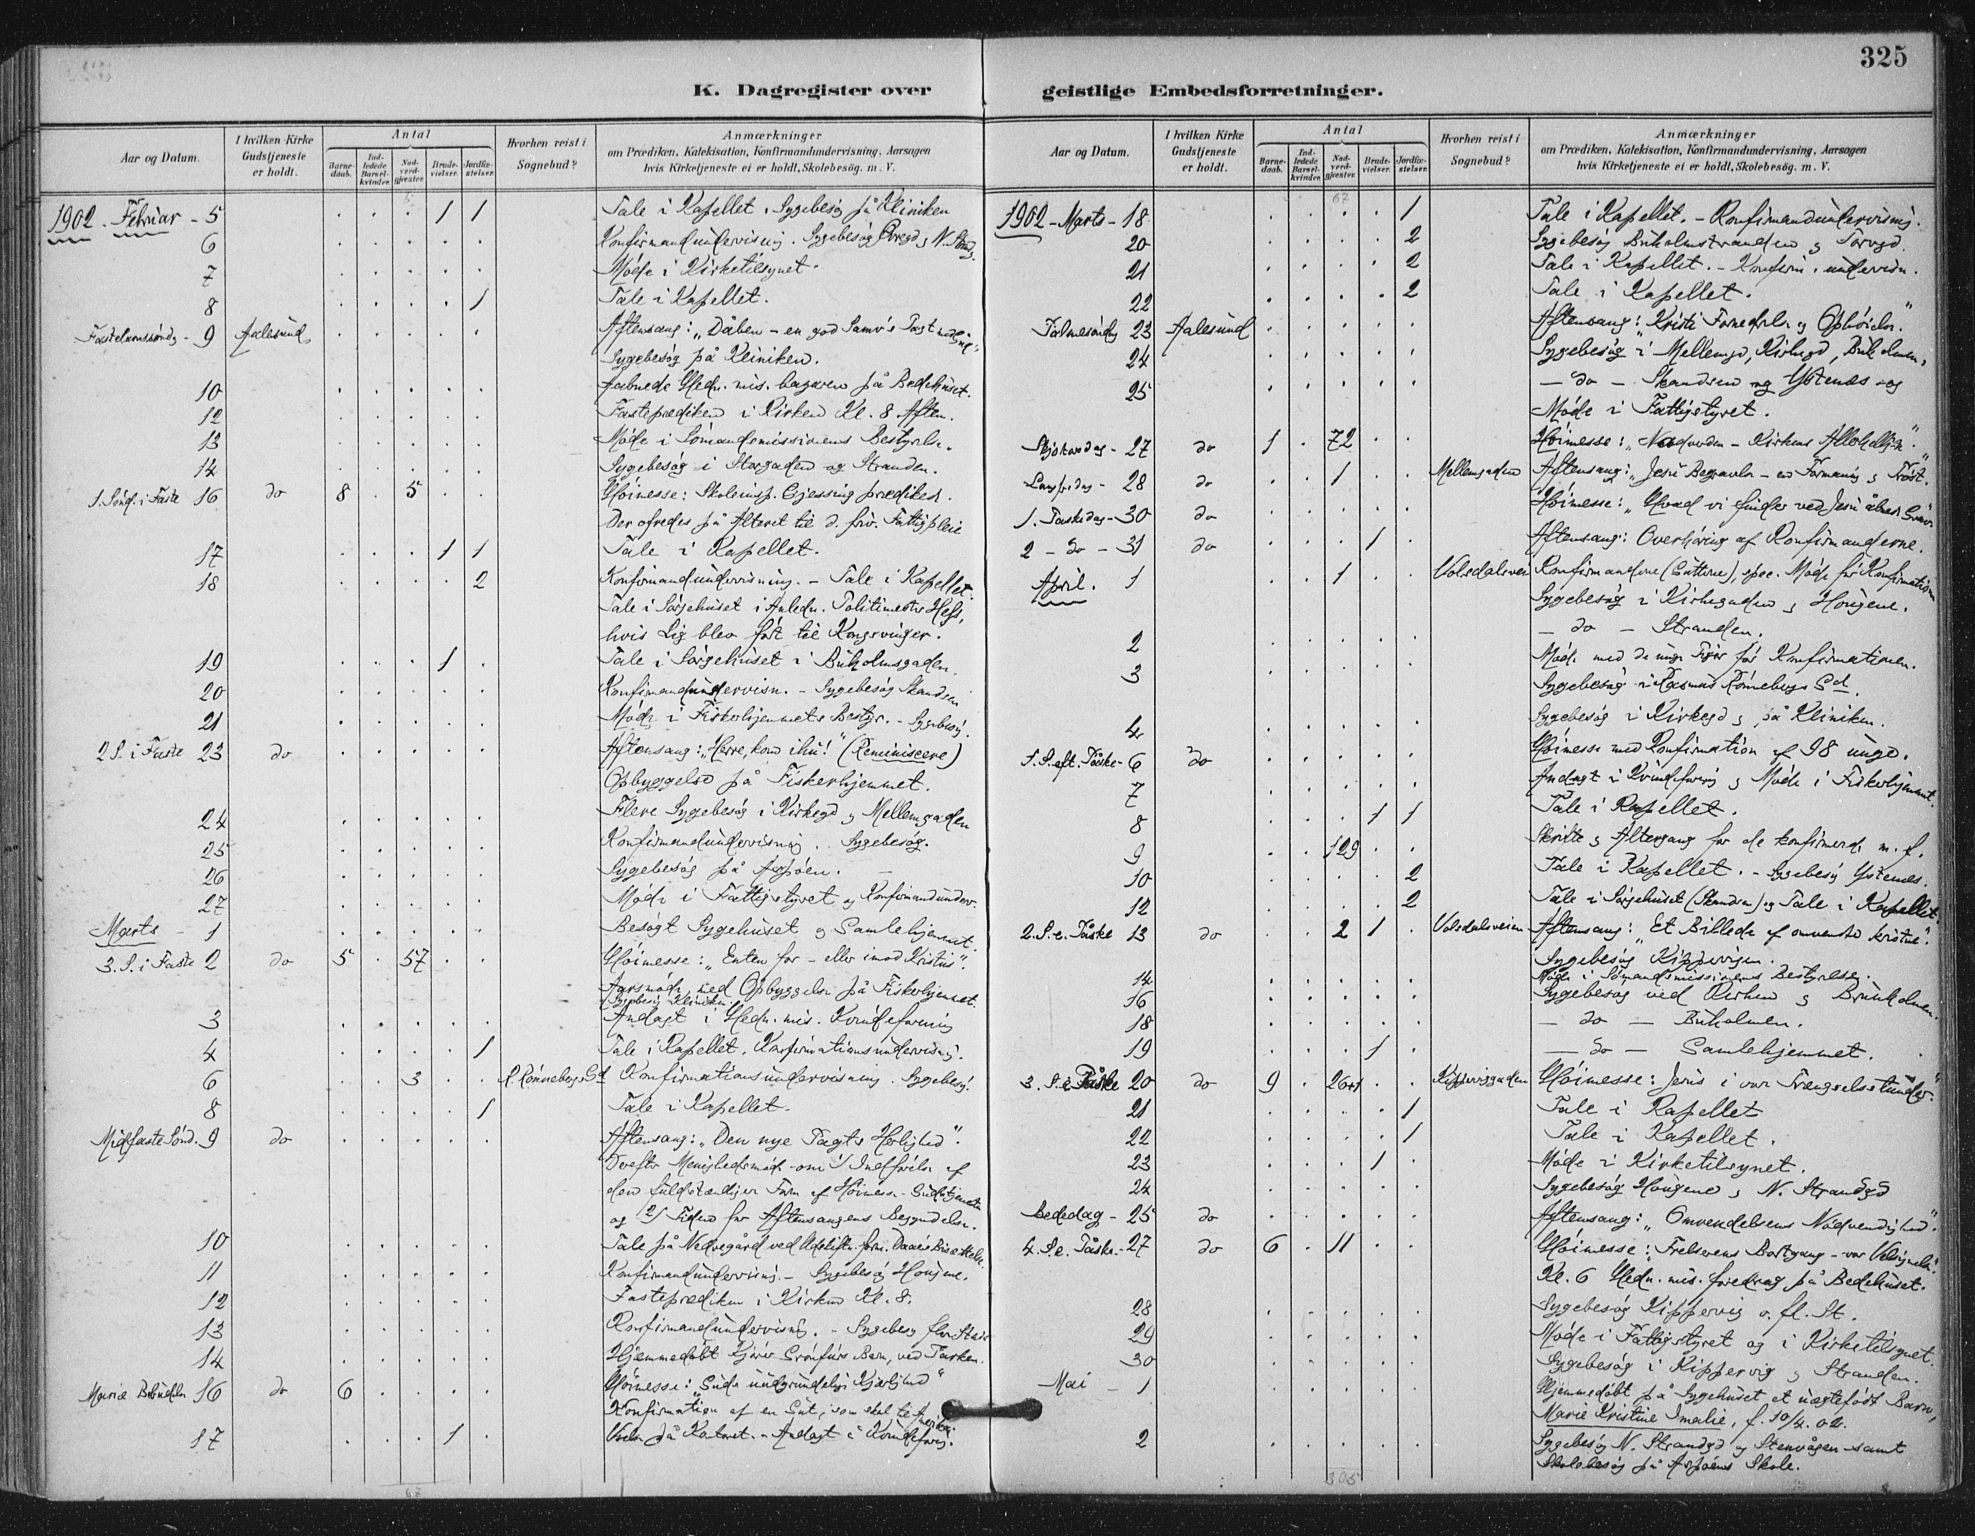 325
K. Dagregister over geistlige Embedsforretninger.
Aar og Datum.
I hvilken Kirke Gudstjeneste er holdt.
Antal
Barne-daab.
Ind-ledede Barsel-kvinder.
Nad-verd-gjæster.
Brude-vielser.
Jordfæ-stelser.
Hvorhen reist i Sognebud?
Anmærkninger
om Prædiken, Katekisation, Konfirmandundervisning, Aarsagen
hvis Kirketjeneste ei er holdt, Skolebesøg. m. V.
1902. Februar - 5 . . . 1 1 Tale i Kapellet. Sygebesøg på Kliniken
6 . . . . . Konfirmandundervisning. Sygebesøg
7 . . . . . Møde i Kirketilsynet.
8 . . . . 1 Tale i Kapellet.
Fastelavnssøndg - 9 Aalesund . . . . . Aftensang: "Dåben - en god Samv's Pagt med Gud"
Sygebesøg på Kliniken.
10 . . . . . Aabnede Hedn. mis. basaren på Bedehuset.
12 . . . . . Fasteprædiken i Kirken Kl. 8 Aften.
13 . . . . . Møde i Sømandsmissionens Bestyrelse.
14 . . . . . Sygebesøg i Storgaden og Stranden.
1. Sønd. i Faste 16 do 8 . 5 . . Høimesse: Skoleinsp. Gjessing prædiked.
Der ofredes på Alteret til d. friv. Fattigpleie
17 . . . 1 1 Tale i Kapellet.
18 . . . . 2 Konfirmandundervisning. - Tale i Kapellet.
Tale i Sørgehuset i Anledn. Politimester
hvis Lig blev ført til Kongsvinger.
19 . . . 1 . Tale i Sørgehuset i Buholmsgaden.
20 . . . . . Konfirmandundervisn. - Sygebesøg Skandsen
21 . . . . . Møde i Fiskerhjemmets Bestyr. - Sygebesøg.
2 S. i Faste 23 do . . . . . Aftensang: "Herre, kom ihu!" (Reminiscere)
Opbyggelse på Fiskerhjemmet.
24 . . . . . Flere Sygebesøg i Kirkegd og Mellemgaden
25 . . . . . Konfirmandundervisning. Sygebesøg.
26 . . . . . Sygebesøg på Aspøen.
27 . . . . . Møde i Fattigstyret og Konfirmandunderv.
Marts - 1 . . . . . Besøgt Sygehuset og Samlehjemmet.
3. S. i Faste 2 do 5 . 57 . . Høimesse: "Enten for - eller imod Kristus".
Aarsmøde med Opbyggelse på Fiskerhjemmet.
Sygebesøg Kliniken.
3 . . . . . Andagt i Hedn. mis. Kvindeforening
4 . . . . 1 Tale i Kapellet. Konfirmationsundervisning.
6 . . 3 . . R. Rønnebergs Gd Konfirmationsundervisning. Sygebesøg.
8 . . . . 1 Tale i Kapellet.
Midfaste Sønd. 9 do . . . . . Aftensang: "Den nye Pagts Herlighed".
Derefter Menighedsmøde om 1/ Indførelse af
den fuldstændiger Form af Høimesse-Gudstjenesten
og 2/ Tiden for Aftensangens Begyndelse.
10 . . . . . Tale på Nedregård ved
11 . . . . . Konfirmandundervisning. - Sygebesøg Hougene.
12 . . . . . Fasteprædiken i Kirken Kl. 8.
13 . . . . . Konfirmandundervisng. - Sygebesøg flere Steder
14 . . . . . Hjemmedøbt Barn, ved Parken.
Mariæ Bebudelse 16 do 6 . . . . Høimesse: "Guds uudgrundelige Kjærlighed"
Konfirmation af en Gut, som skal til Amerika.
17 . . . 1 . på Kontoret. - Andagt i Kvindeforeng.
67
Aar og Datum.
I hvilken Kirke Gudstjeneste er holdt.
Antal
Barne-daab.
Ind-ledede Barsel-kvinder.
Nad-verd-gjæster.
Brude-vielser.
Jordfæ-stelser.
Hvorhen reist i Sognebud?
Anmærkninger
om Prædiken, Katekisation, Konfirmandundervisning, Aarsagen
hvis Kirketjeneste ei er holdt, Skolebesøg. m. V.
67
1902 - Marts - 18 . . . . 1 Tale i Kapellet. - Konfirmandundervisning.
20 . . . . 2 Sygebesøg Buholmstranden og Torvgd.
21 . . . . 2 Tale i Kapellet. - Konfirm. undervisn.
22 . . . . 2 Tale i Kapellet.
Palmesøndag 23 Aalesund . . . . . Aftensang: "Kristi Fornedrelse og Ophøielse."
24 . . . . . Sygebesøg i Mellemgd, Kirkegd, Buholmen.
25 . . . . . - do - Skandsen og Ystenæs og
Møde i Fattigstyret.
Skjærtorsdag - 27 do 1 . 72 . . Høimesse: "Nadverden - Kirkens Allerhelligste".
Langfredag - 28 do . . 1 . . Mellemgaden Aftensang: "Jesu Begravelse - en Formaning og Trøst."
1. Paaskedag - 30 do . . . . . Høimesse: "Hvad vi finder ved Jesu åbne Grav"
2 - do - 31 do . . . 1 . Aftensang: Overhøring af Konfirmanderne.
April. 1 . . 1 . . Volsdalsvei Konfirmandene (Gutterne), spec. Møde før Konfirmation
Sygebesøg i Kirkegaden og Hougene.
2 . . . . . - do - Stranden.
3 . . . . . Møde med de unge Piger før Konfirmationen.
Sygebesøg i Rasmus Rønnebergs Gd.
4 . . . . . Sygebesøg i Kirkegd og på Kliniken.
1. S. eft. Påske - 6 do . . . . . Høimesse med Konfirmation af 98 unge.
7 . . . . . Andagt i Kvindforeng og Møde i Fiskerhjemmet.
8 . . . 1 1 Tale i Kapellet.
9 . . 129 . . Skrifte og Altergang for de konfirmerede m. fl.
10 . . . . 2 Tale i Kapellet. - Sygebesøg Ystenæs.
12 . . . . 2 Tale i Sørgehuset (Skandsen) og Tale i Kapellet.
2. S. e. Påske 13 do . . 2 1 . Volsdalsveien Aftensang: "Et Billede af omvendte kristne".
Sygebesøg Kippervigen.
14 . . . . . Møde i Sømandsmissionens Bestyrelse.
16 . . . . . Sygebesøg ved Kirken og Brunholmen.
18 . . . . . - do - Buholmen.
19 . . . 1 . - do - Samlehjemmet.
3. S. e. Påske 20 do 9 . 26+1 . . Kippervigaden Høimesse: Jesus i vor Trængselsstunder."
21 . . . . 1 Tale i Kapellet
22 . . . . 1 Tale i Kapellet.
23 . . . 1 . Møde i Kirketilsynet.
24 . . . . . Sygebesøg Hougene og N. Strandgd
Bededag - 25 do . . . . . Aftensang: "Omvendelsens Nødvendighed".
4. S. e. Påske - 27 do 6 . 11 . . Høimesse: "Frelserens Bortgang - vor Velsignelse".
Kl. 6 Hedn. mis. foredrag på Bedehuset.
28 . . . . . Sygebesøg Kippervig o. fl. St.
29 . . . . . Møde i Fattigstyret og i Kirketilsynet.
30 . . . . . Sygebesøg i Kippervig og Stranden.
Mai - 1 . . . . . Hjemmedøbt på Sygehuset et uægtefødt Barn,
Marie Kristine Amalie, f. 10/4. 02.
2 . . . . . Sygebesøg N. Strandgd og Stenvågen samt
Skolebesøg på Aspøens Skole.
305